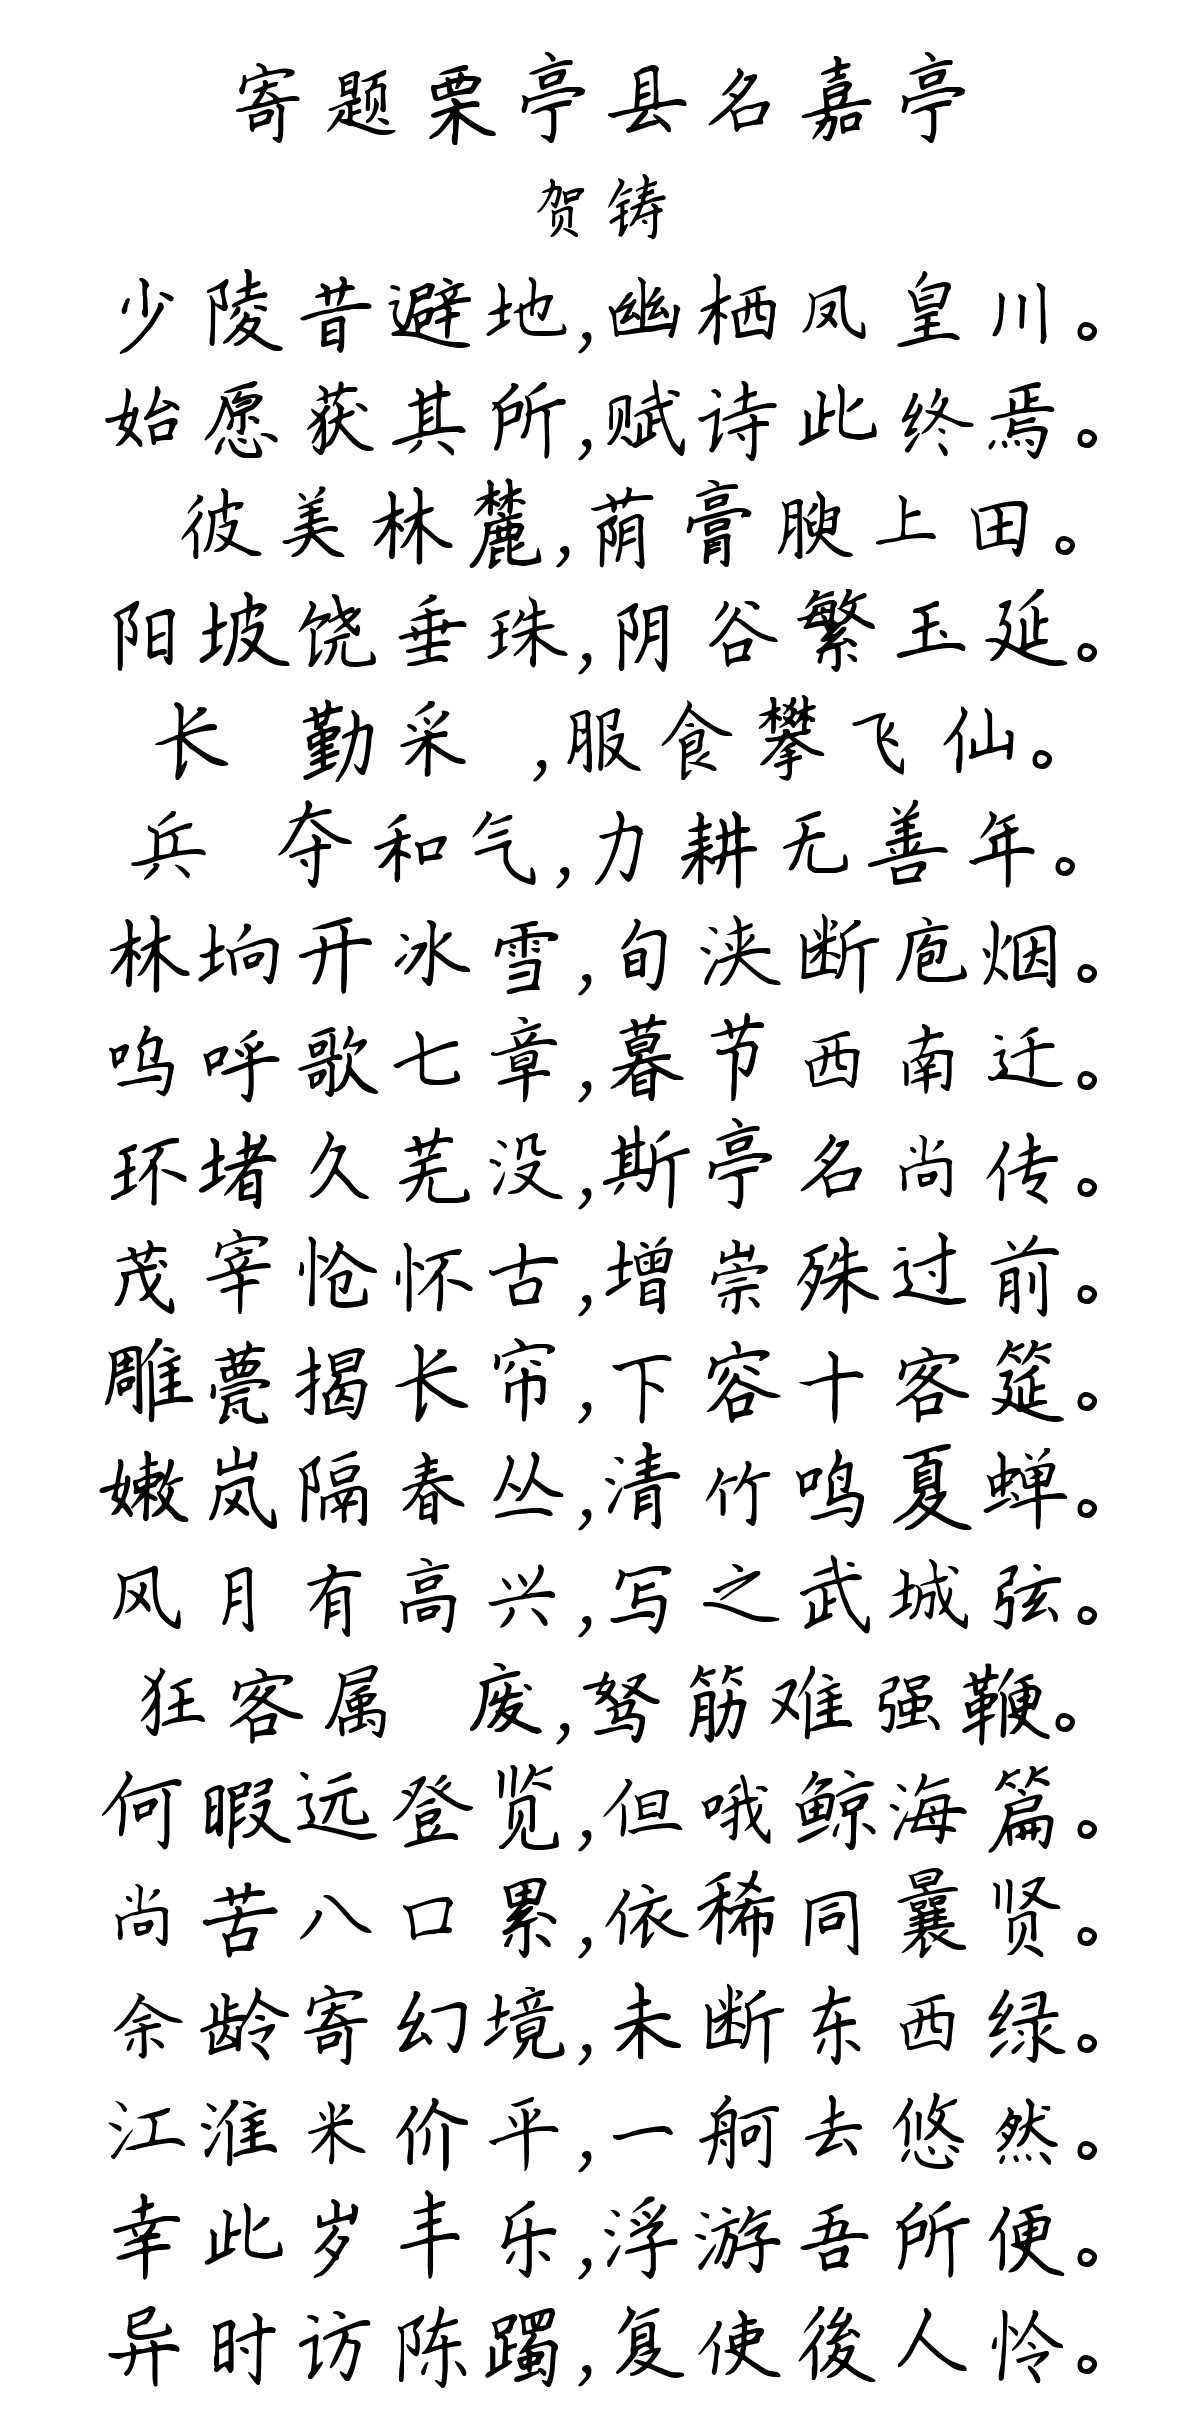 寄题栗亭县名嘉亭
贺铸
少陵昔避地,幽栖凤皇川。
始愿获其所,赋诗此终焉。
彼美林麓,荫膏腴上田。
阳坡饶垂珠,阴谷繁玉延。
长 勤采 ,服食攀飞仙。
兵 夺和气,力耕无善年。
林垧开冰雪,旬浃断庖烟。
呜呼歌七章,暮节西南迁。
环堵久芜没,斯亭名尚传。
茂宰怆怀古,增崇殊过前。
雕甍揭长帘,下容十客筵。
嫩岚隔春丛,清竹鸣夏蝉。
风月有高兴,写之武城弦。
狂客属 废,驽筋难强鞭。
何暇远登览,但哦鲸海篇。
尚苦八口累,依稀同曩贤。
余龄寄幻境,未断东西绿。
江淮米价平,一舸去悠然。
幸此岁丰乐,浮游吾所便。
异时访陈躅,复使後人怜。